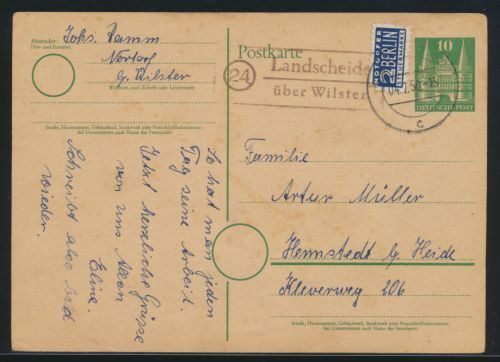 Absender:
Johs. Damm
(Vor- und Zuname)
Nortorf
b/ Wilster
Wohnort, auch Zustell- oder Leitpostamt
Straße, Hausnummer, Gebäudeteil, Stockwerk oder Postschließfachnummer;
bei Untermietern auch Name des Vermieters
So hat man jeden
Tag seine Arbeit.
Jetzt herzliche Grüsse
von uns Allen
Eline.
Schreibt aber bald
wieder.
Postkarte
24
Landscheide
über Wilster
NOTOPFER
2 BERLIN
STEUERMARKE
10
DEUTSCHE POST
c
Familie
Artur Müller
Hennstedt b/ Heide
Kleverweg 206
Straße, Hausnummer, Gebäudeteil, Stockwerk oder Postschließfachnummer;
bei Untermietern auch Name des Vermieters